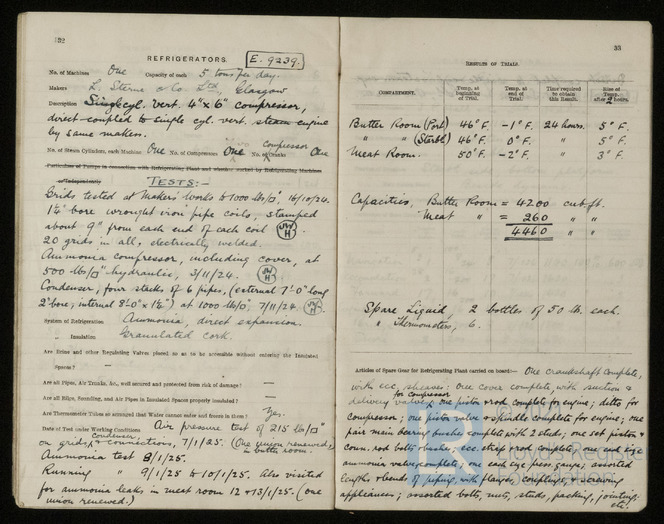 132
REFRIGERATORS. E. 9239.
No. of Machines One Capacity of each 5 tons per day.
Makers L. Sterne & Co Ltd, Glasgow
Description Single cyl. vert. 4" x 6" compressor,
direct-coupled to single cyl. vert. steam engine
by same makers.
No. of Steam Cylinders, each Machine One No. of Compressors One No. of compressor Cranks One
Particulars of Pumps in connection with Refrigerating Plant and whether worked by Refrigerating Machines
or Independently
TESTS:-
Grids tested at Makers' Works to 1000 lbs/□" 16/10/24.
1¼" bore wrought iron pipe coils, stamped
about 9" from each end of each coil
20 grids in all, electrically welded.
Ammonia compressor, including cover, at
500 lbs/□" hydraulic, 3/11/24.
Condenser, four stacks of 6 pipes, (external 7'-0" long
2" bore; internal 8'-0" x 1¼") at 1000 lbs/□", 7/11/24.
System of Refrigeration Ammonia, direct expansion.
" Insulation Granulated cork.
Are Brine and other Regulating Valves placed so as to be accessible without entering the Insulated
Spaces? —
Are all Pipes, Air Trunks, &c., well secured and protected from risk of damage? —
Are all Bilge, Sounding, and Air Pipes in Insulated Spaces properly insulated? —
Are Thermometer Tubes so arranged that Water cannot enter and freeze in them? Yes.
Date of Test under Working Conditions Air pressure test of 215 lbs/□"
on grids, condenser, & connections, 7/1/25. (One union renewed, in butter room.
Ammonia test 8/1/25.
Running " 9/1/25 to 10/1/25. Also visited
for ammonia leaks in meat room 12 & 13/1/25. (one
union renewed.)
33
RESULTS OF TRIALS.
COMPARTMENT. Temp. at beginning of Trial. Temp. at end of Trial. Time required to obtain this Result. Rise of Temp. after 2 hours.
Butter Room (Port) 46° F. -1° F. 24 hours. 5° F.
" " (Starbd) 46° F. 0° F. " 5° F.
Meat Room. 50° F. -2° F. " 3° F.
Capacities, Butter Room = 4200 cub. ft.
Meat " = 260 " "
4460 " "
Spare Liquid, 2 bottles of 50 lb. each.
" Thermometers, 6.
Articles of Spare Gear for Refrigerating Plant carried on board:- One crankshaft complete,
with ecc. sheaves; one cover complete with suction &
delivery valves for compressor; one piston & rod complete for engine; ditto for
compressor; one piston valve & spindle complete for engine; one
pair main bearing bushes complete with 2 studs; one set piston &
conn. rod bolts, bushes, ecc. strap & rod complete, one each
ammonia valve, complete; one each type press. gauge; assorted
lengths & bends of piping, with flanges, couplings, & screwing
appliances; assorted bolts, nuts, studs, packing, jointing, etc.
Lloyd's Register